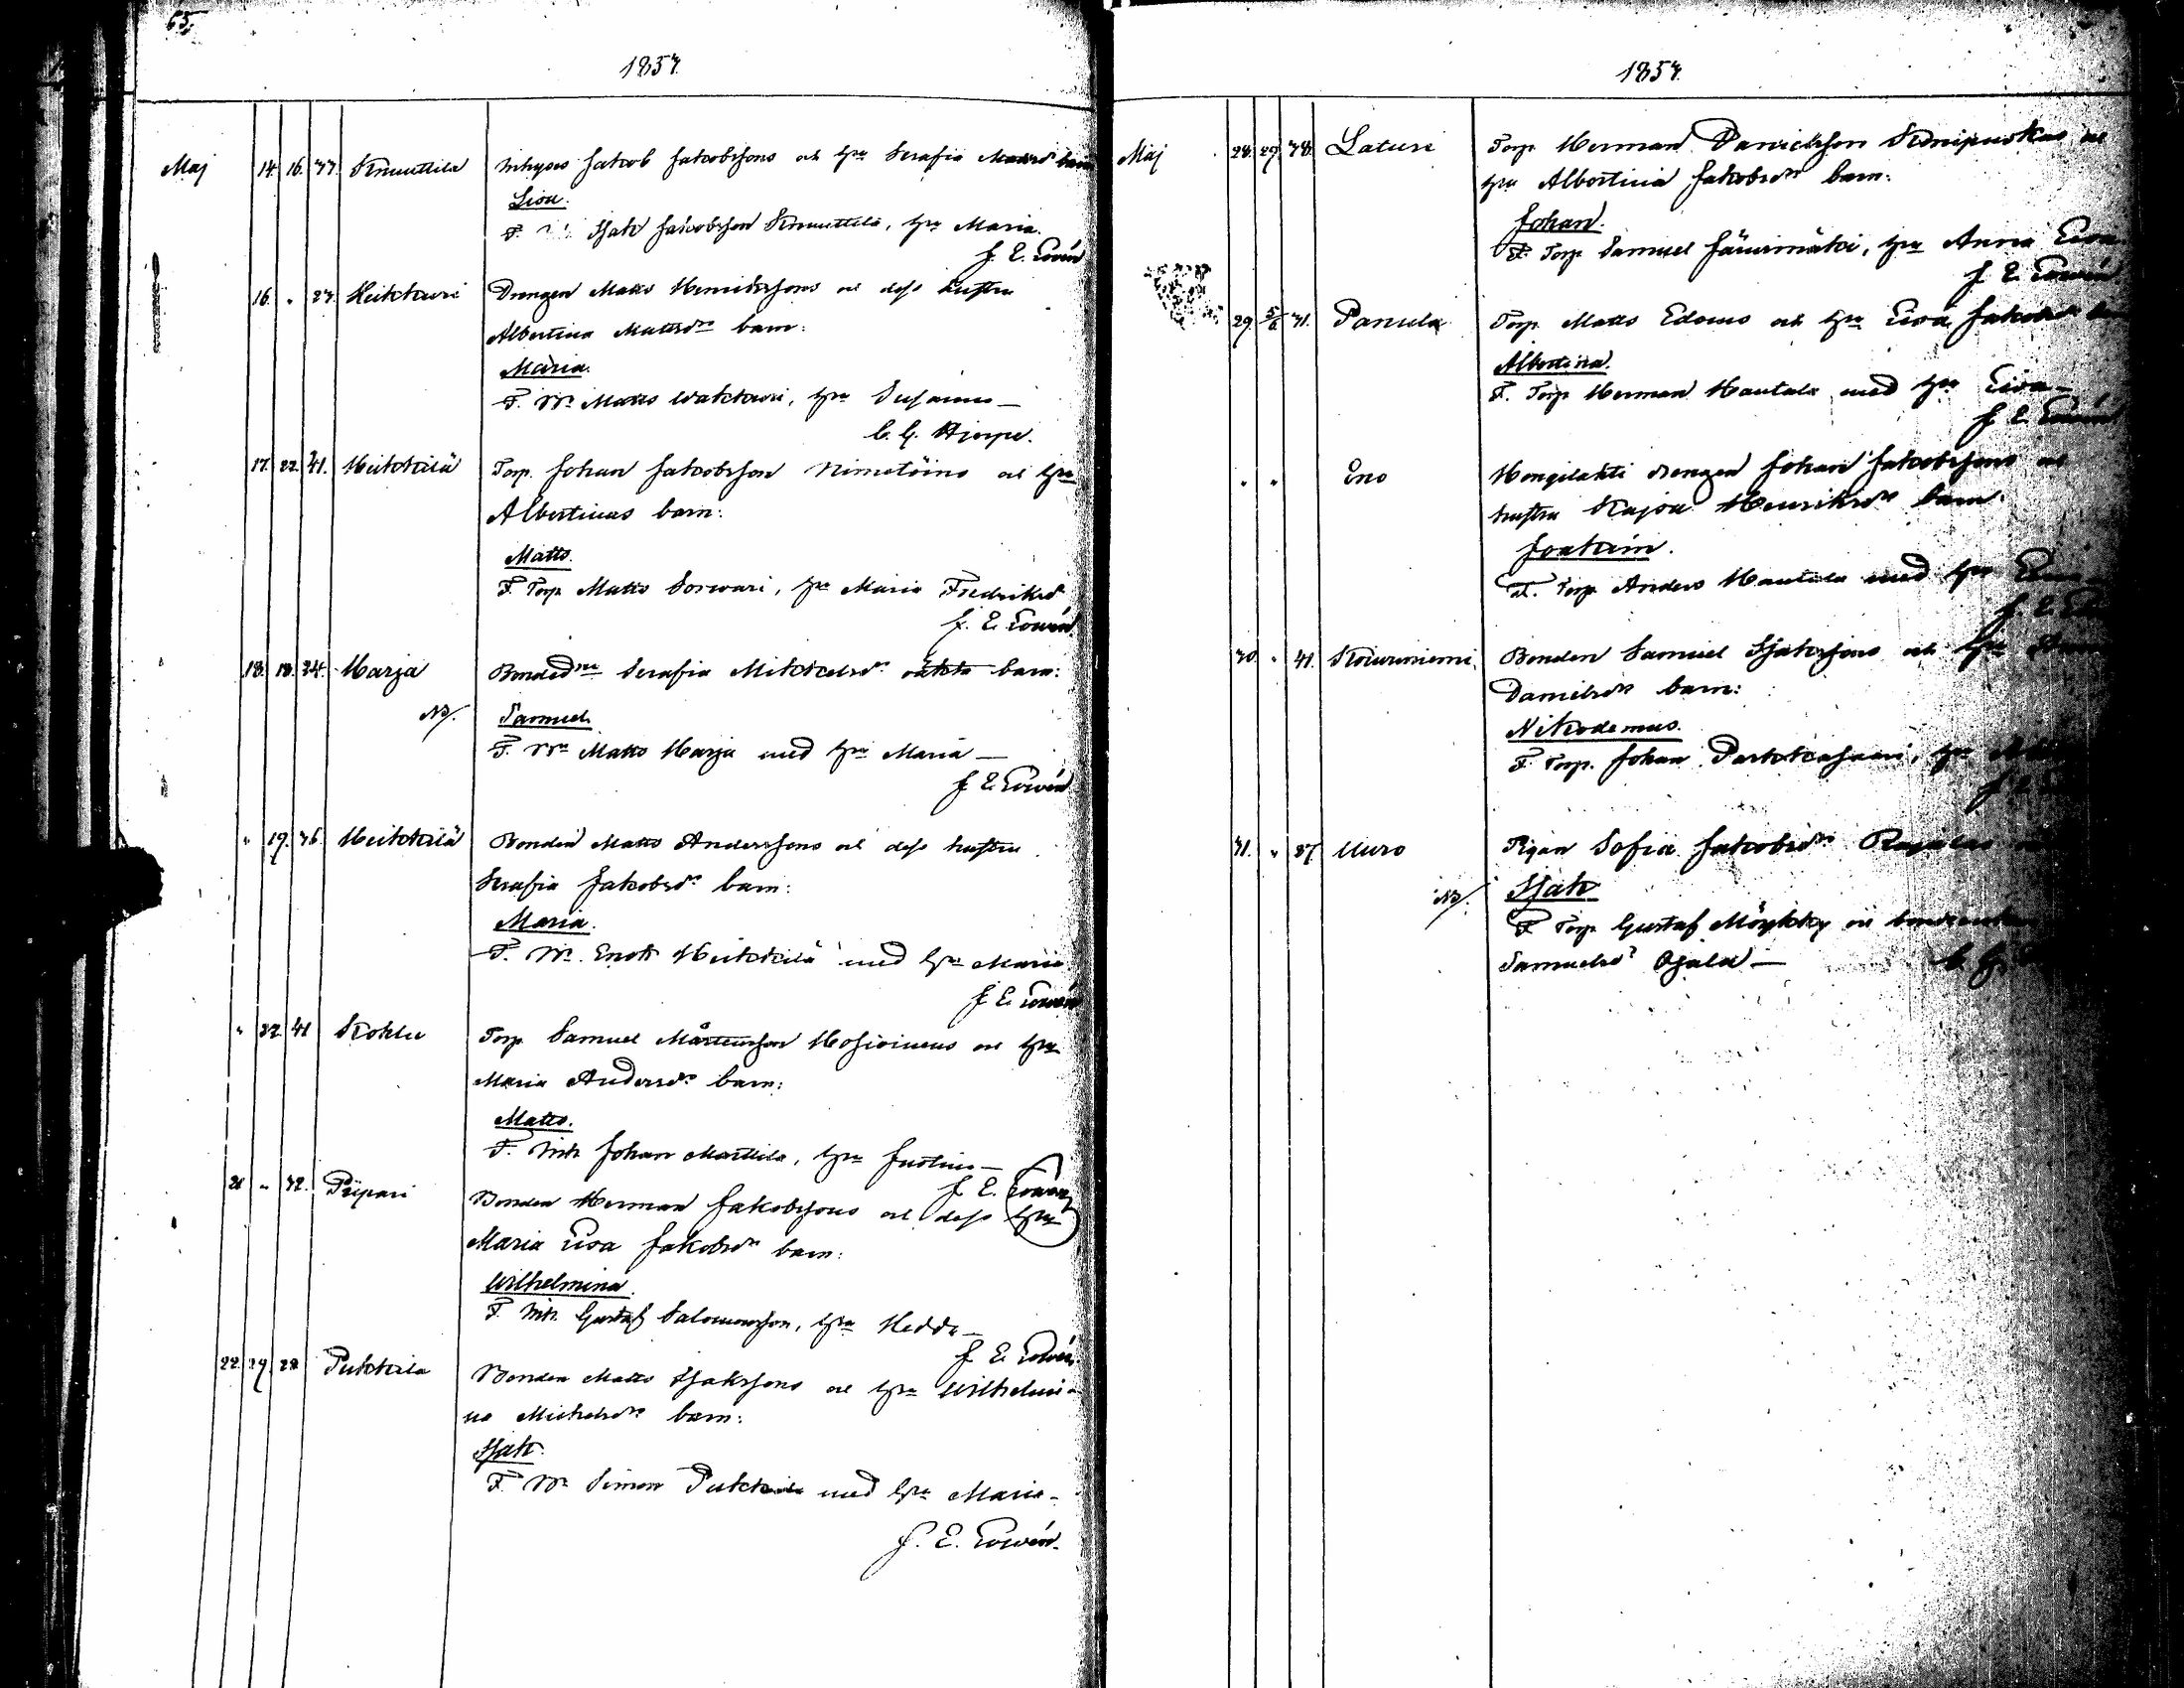 65.
1857.
Maj 14. 16. 33. Knuuttila Inhyses Jakob Jakobssons och hu Serafia barn
Lisa.
F. Isak Jakobsson Knuuttila, hu Maria.
J. E. Cowén
16. " 23. Heikkuri Drengen Matts Henrikssons och dess hustru
Albertina Mattsdr barn:
Maria.
F. Bn Matts Wakkuri, hu Susanna —
C. G. Hjerpe.
17. 22. 41. Heikkilä Torp. Johan Jakobsson Nimetöins och hu
Albertinas barn:
Matts.
F. Torp Matts Sorwari, hu Maria Fredriksd
J. E. Cowén
18. 18. 24. Harja Bonded Serafia Mikkelsdr oäkta barn:
NB. Samuel.
F. Bn Matts Harja med hu Maria —
J. E. Cowén
" 19. 36. Heikkilä Bonden Matts Anderssons och dess hustru
Serafia Jakobsdr barn:
Maria.
F. Bn. Enok Heikkilä med hu Maria
J. E. Cowén
" 22. 41 Kokko Torp Samuel Mårtensson Hosioinens och hu
Maria Andersdr barn:
Matts.
F. Inh Johan Marttila, hu Justina —
J. E. Cowén
21 " 32. Piipari Bonden Herman Jakobssons och dess hu
Maria Ewa Jakobsdr barn:
Wilhelmina.
F. Inh. Gustaf Salomonsson, hu Hedda —
J. E. Cowén
22. 29. 28 Pukkila Bonden Matts Isakssons och hu Wilhelmi-
na Michelsdr barn:
Isak.
F. Bn Simon Pukkila med hu Maria —
J. E. Cowén.
1857.
Maj 28. 29. 38. Laturi Torp Herman Danielsson och
hu Albertina Jakobsdr barn:
Johan.
F. Torp Samuel hu Anna Ewa
J. E. Cowén
29 5/6 31. Panula Torp Matts Edens och hu Ewa Jakobsd
Albertina.
F. Torp Herman Hautala med hu Ewa —
J. E. Cowén
" " Eno Hongilahti drengen Johan Jakobssons och
hustru Kajsa Henriksdr barn.
Joakim.
F. Torp Anders Hautala med hu
J. E.
30 " 41. Kouruniemi Bonden Samuel Isakssons och hu
Danielsdr barn:
Nikodemus.
F. Torp. Johan hu
J. E.
31. " 27 Uuro Pigan Sofia Jakobsdr
NB. Isak
F. Torp Gustaf Möykky
Samuelsd Ojala —
C. G.